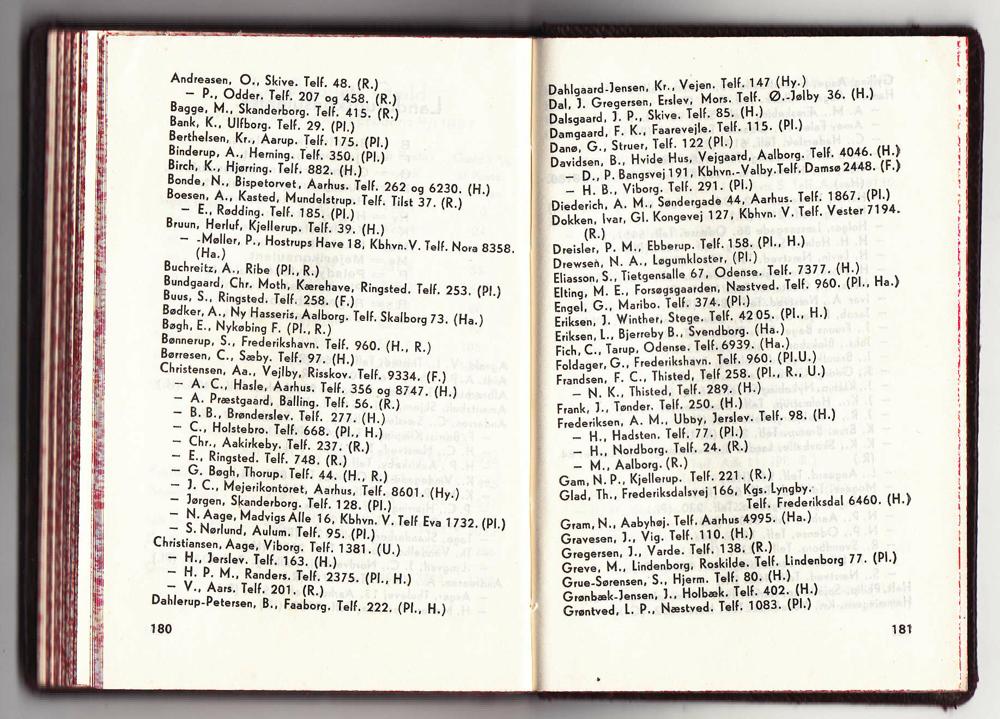 Andreasen, O., Skive. Telf. 48. (R.)
— P., Odder. Telf. 207 og 458. (R.)
Bagge, M., Skanderborg. Telf. 415. (R.)
Bank, K., Ulfborg. Telf. 29. (Pl.)
Berthelsen, Kr., Aarup. Telf. 175. (Pl.)
Binderup, A., Herning. Telf. 350. (Pl.)
Birch, K., Hjørring. Telf. 882. (H.)
Bonde, N., Bispetorvet, Aarhus. Telf. 262 og 6230. (H.)
Boesen, A., Kasted, Mundelstrup. Telf. Tilst 37. (R.)
— E., Rødding. Telf. 185. (Pl.)
Bruun, Herluf, Kjellerup. Telf. 39. (H.)
— -Møller, P., Hostrups Have 18, Kbhvn. V. Telf. Nora 8358.
(Ha.)
Buchreitz, A., Ribe (Pl., R.)
Bundgaard, Chr. Moth, Kærehave, Ringsted. Telf. 253. (Pl.)
Buus, S., Ringsted. Telf. 258. (F.)
Bødker, A., Ny Hasseris, Aalborg. Telf. Skalborg 73. (Ha.)
Bøgh, E., Nykøbing F. (Pl., R.)
Bønnerup, S., Frederikshavn. Telf. 960. (H., R.)
Børresen, C., Sæby. Telf. 97. (H.)
Christensen, Aa., Vejlby, Risskov. Telf. 9334. (F.)
— A. C., Hasle, Aarhus. Telf. 356 og 8747. (H.)
— A. Præstgaard, Balling. Telf. 56. (R.)
— B. B., Brønderslev. Telf. 277. (H.)
— C., Holstebro. Telf. 668. (Pl., H.)
— Chr., Aakirkeby. Telf. 237. (R.)
— E., Ringsted. Telf. 748. (R.)
— G. Bøgh, Thorup. Telf. 44. (H., R.)
— J. C., Mejerikontoret, Aarhus, Telf. 8601. (Hy.)
— Jørgen, Skanderborg. Telf. 128. (Pl.)
— N. Aage, Madvigs Alle 16, Kbhvn. V. Telf Eva 1732. (Pl.)
— S. Nørlund, Aulum. Telf. 95. (Pl.)
Christiansen, Aage, Viborg. Telf. 1381. (U.)
— H., Jerslev. Telf. 163. (H.)
— H. P. M., Randers. Telf. 2375. (Pl., H.)
— V., Aars. Telf. 201. (R.)
Dahlerup-Petersen, B., Faaborg. Telf. 222. (Pl., H.)
180
Dahlgaard-Jensen, Kr., Vejen. Telf. 147 (Hy.)
Dal, J. Gregersen, Erslev, Mors. Telf. Ø.-Jølby 36. (H.)
Dalsgaard, J. P., Skive. Telf. 85. (H.)
Damgaard, F. K., Faarevejle. Telf. 115. (Pl.)
Danø, G., Struer, Telf. 122 (Pl.)
Davidsen, B., Hvide Hus, Vejgaard, Aalborg. Telf. 4046. (H.)
— D., P. Bangsvej 191, Kbhvn.-Valby. Telf. Damsø 2448. (F.)
— H. B., Viborg. Telf. 291. (Pl.)
Diederich, A. M., Søndergade 44, Aarhus. Telf. 1867. (Pl.)
Dokken, Ivar, Gl. Kongevej 127, Kbhvn. V. Telf. Vester 7194.
(R.)
Dreisler, P. M., Ebberup. Telf. 158. (Pl., H.)
Drewsen, N. A., Løgumkloster, (Pl.)
Eliasson, S., Tietgensalle 67, Odense. Telf. 7377. (H.)
Elting, M. E., Forsøgsgaarden, Næstved. Telf. 960. (Pl., Ha.)
Engel, G., Maribo. Telf. 374. (Pl.)
Eriksen, J. Winther, Stege. Telf. 42 05. (Pl., H.)
Eriksen, L., Bjerreby B., Svendborg. (Ha.)
Fich, C., Tarup, Odense. Telf. 6939. (Ha.)
Foldager, G., Frederikshavn. Telf. 960. (Pl.U.)
Frandsen, F. C., Thisted, Telf 258. (Pl., R., U.)
— N. K., Thisted, Telf. 289. (H.)
Frank, J., Tønder. Telf. 250. (H.)
Frederiksen, A. M., Ubby, Jerslev. Telf. 98. (H.)
— H., Hadsten. Telf. 77. (Pl.)
— H., Nordborg. Telf. 24. (R.)
— M., Aalborg. (R.)
Gam, N. P., Kjellerup. Telf. 221. (R.)
Glad, Th., Frederiksdalsvej 166, Kgs. Lyngby.
Telf. Frederiksdal 6460. (H.)
Gram, N., Aabyhøj. Telf. Aarhus 4995. (Ha.)
Gravesen, J., Vig. Telf. 110. (H.)
Gregersen, J., Varde. Telf. 138. (R.)
Greve, M., Lindenborg, Roskilde. Telf. Lindenborg 77. (Pl.)
Grue-Sørensen, S., Hjerm. Telf. 80. (H.)
Grønbæk-Jensen, J., Holbæk. Telf. 402. (H.)
Grøntved, L. P., Næstved. Telf. 1083. (Pl.)
181